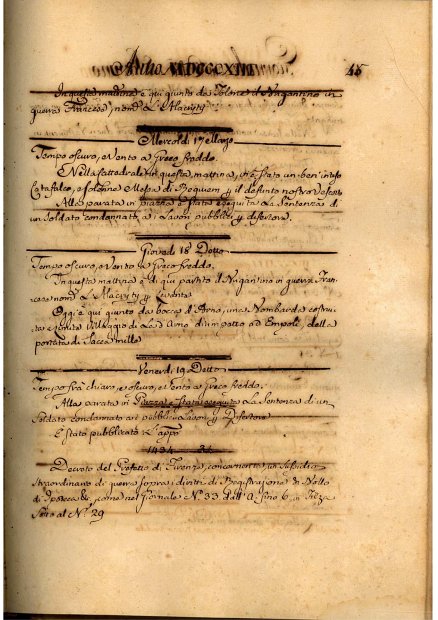 Anno MDCCCXIII 45
In questa mattina è qui giunto da Tolone il Brigantino in
guerra Francese, nom.
Mercoldì 17 Marzo
Tempo oscuro, e Vento a Greco freddo.
E Nella Cattedrale in questa mattina, vi è stato un ben inteso
Catafalco, e solenne Messa di Requiem p. il defunto nostro Vescovo
Alla parata in piazza è stata eseguita La Sentenza di
un Soldato condannato a i Lavori pubblici p. disertore.
Giovedì 18 Detto
Tempo oscuro, e Vento a Greco freddo.
In questa mattina è di qui partito il Brigantino in guerra Fran-
cese nom. p. Levante
Oggi è qui giunto da bocca d'Arno, una Bombarda costrui-
ta Villaggio di La d'Arno di un posto ad Empoli, della
portata di Sacca mille
Venerdì 19 Detto
Tempo fra chiaro, e oscuro, e Vento a Greco freddo.
Alla parata in Piazza è stata eseguita La Sentenza di un
Soldato condannato ai pubblici Lavori p. Disertore
È Stato pubblicato L'app.
1434 34
Decreto del Prefetto di Firenze, concernente un Sussidio
straordinario di guerra sopra i diritti di Registrazione di Bollo
di Ipoteca &c, come nel Giornale N.° 33 dall'
al N.° 29